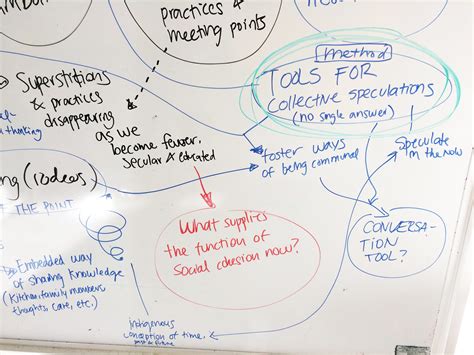 practices &
meeting points
method
TOOLS FOR
collective speculations
(no single answer)
Superstitions
& practices
disappearing
as we
become fewer,
secular & educated
thinking
foster ways
of being communal
Speculate
in the now
(rodeos)
THE POINT
What supplies
the function of
social cohesion now?
CONVERSA-
TION
TOOL?
Embedded way
of sharing knowledge
(kitchen, family members,
thoughts, care, etc.)
indigenous
conception of time,
past & future